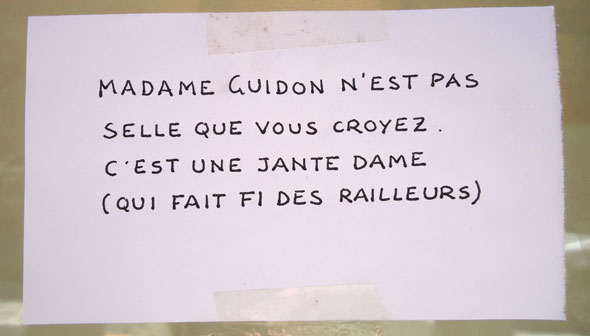 MADAME GUIDON N'EST PAS
SELLE QUE VOUS CROYEZ.
C'EST UNE JANTE DAME
(QUI FAIT FI DES RAILLEURS)